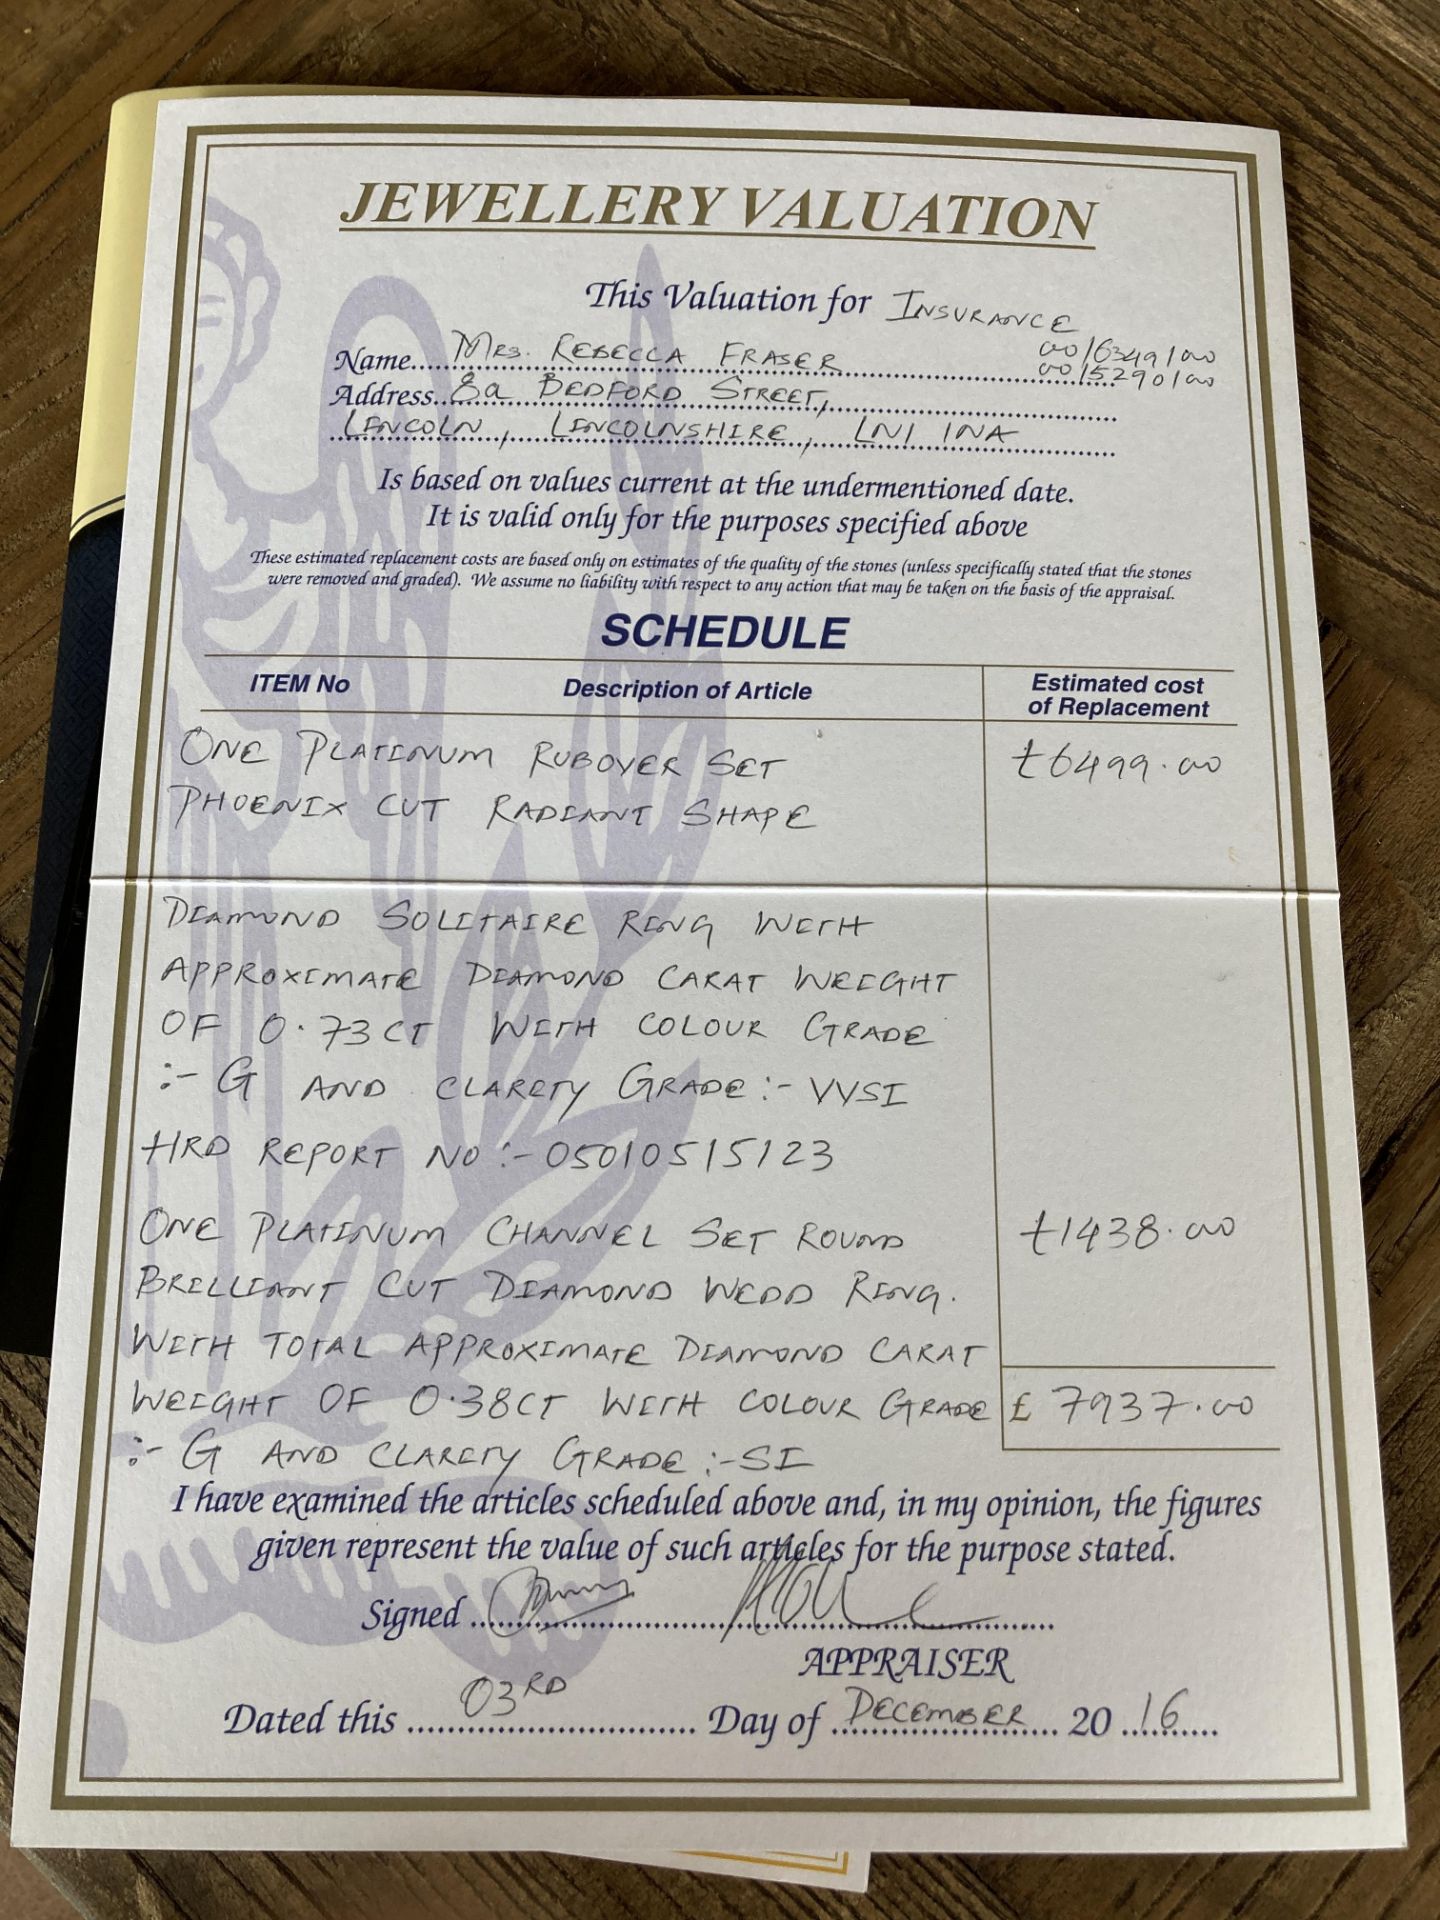 JEWELLERY VALUATION
This Valuation for INSURANCE
Name....MRS. REBECCA FRASER 0016349100
0015290100
Address..8a BEDFORD STREET,
LINCOLN, LINCOLNSHIRE, LN1 1NA
Is based on values current at the undermentioned date.
It is valid only for the purposes specified above
These estimated replacement costs are based only on estimates of the quality of the stones (unless specifically stated that the stones
were removed and graded). We assume no liability with respect to any action that may be taken on the basis of the appraisal.
SCHEDULE
ITEM No Description of Article Estimated cost
of Replacement
ONE PLATINUM RUBOVER SET £6499.00
PHOENIX CUT RADIANT SHAPE
DIAMOND SOLITAIRE RING WITH
APPROXIMATE DIAMOND CARAT WEIGHT
OF 0.73CT WITH COLOUR GRADE
:- G AND CLARITY GRADE:- VVSI
HRD REPORT NO:- 05010515123
ONE PLATINUM CHANNEL SET ROUND £1438.00
BRILLIANT CUT DIAMOND WEDD RING.
WITH TOTAL APPROXIMATE DIAMOND CARAT
WEIGHT OF 0.38CT WITH COLOUR GRADE £ 7937.00
:- G AND CLARITY GRADE:-SI
I have examined the articles scheduled above and, in my opinion, the figures
given represent the value of such articles for the purpose stated.
Signed
APPRAISER
Dated this 03RD Day of DECEMBER 20 16